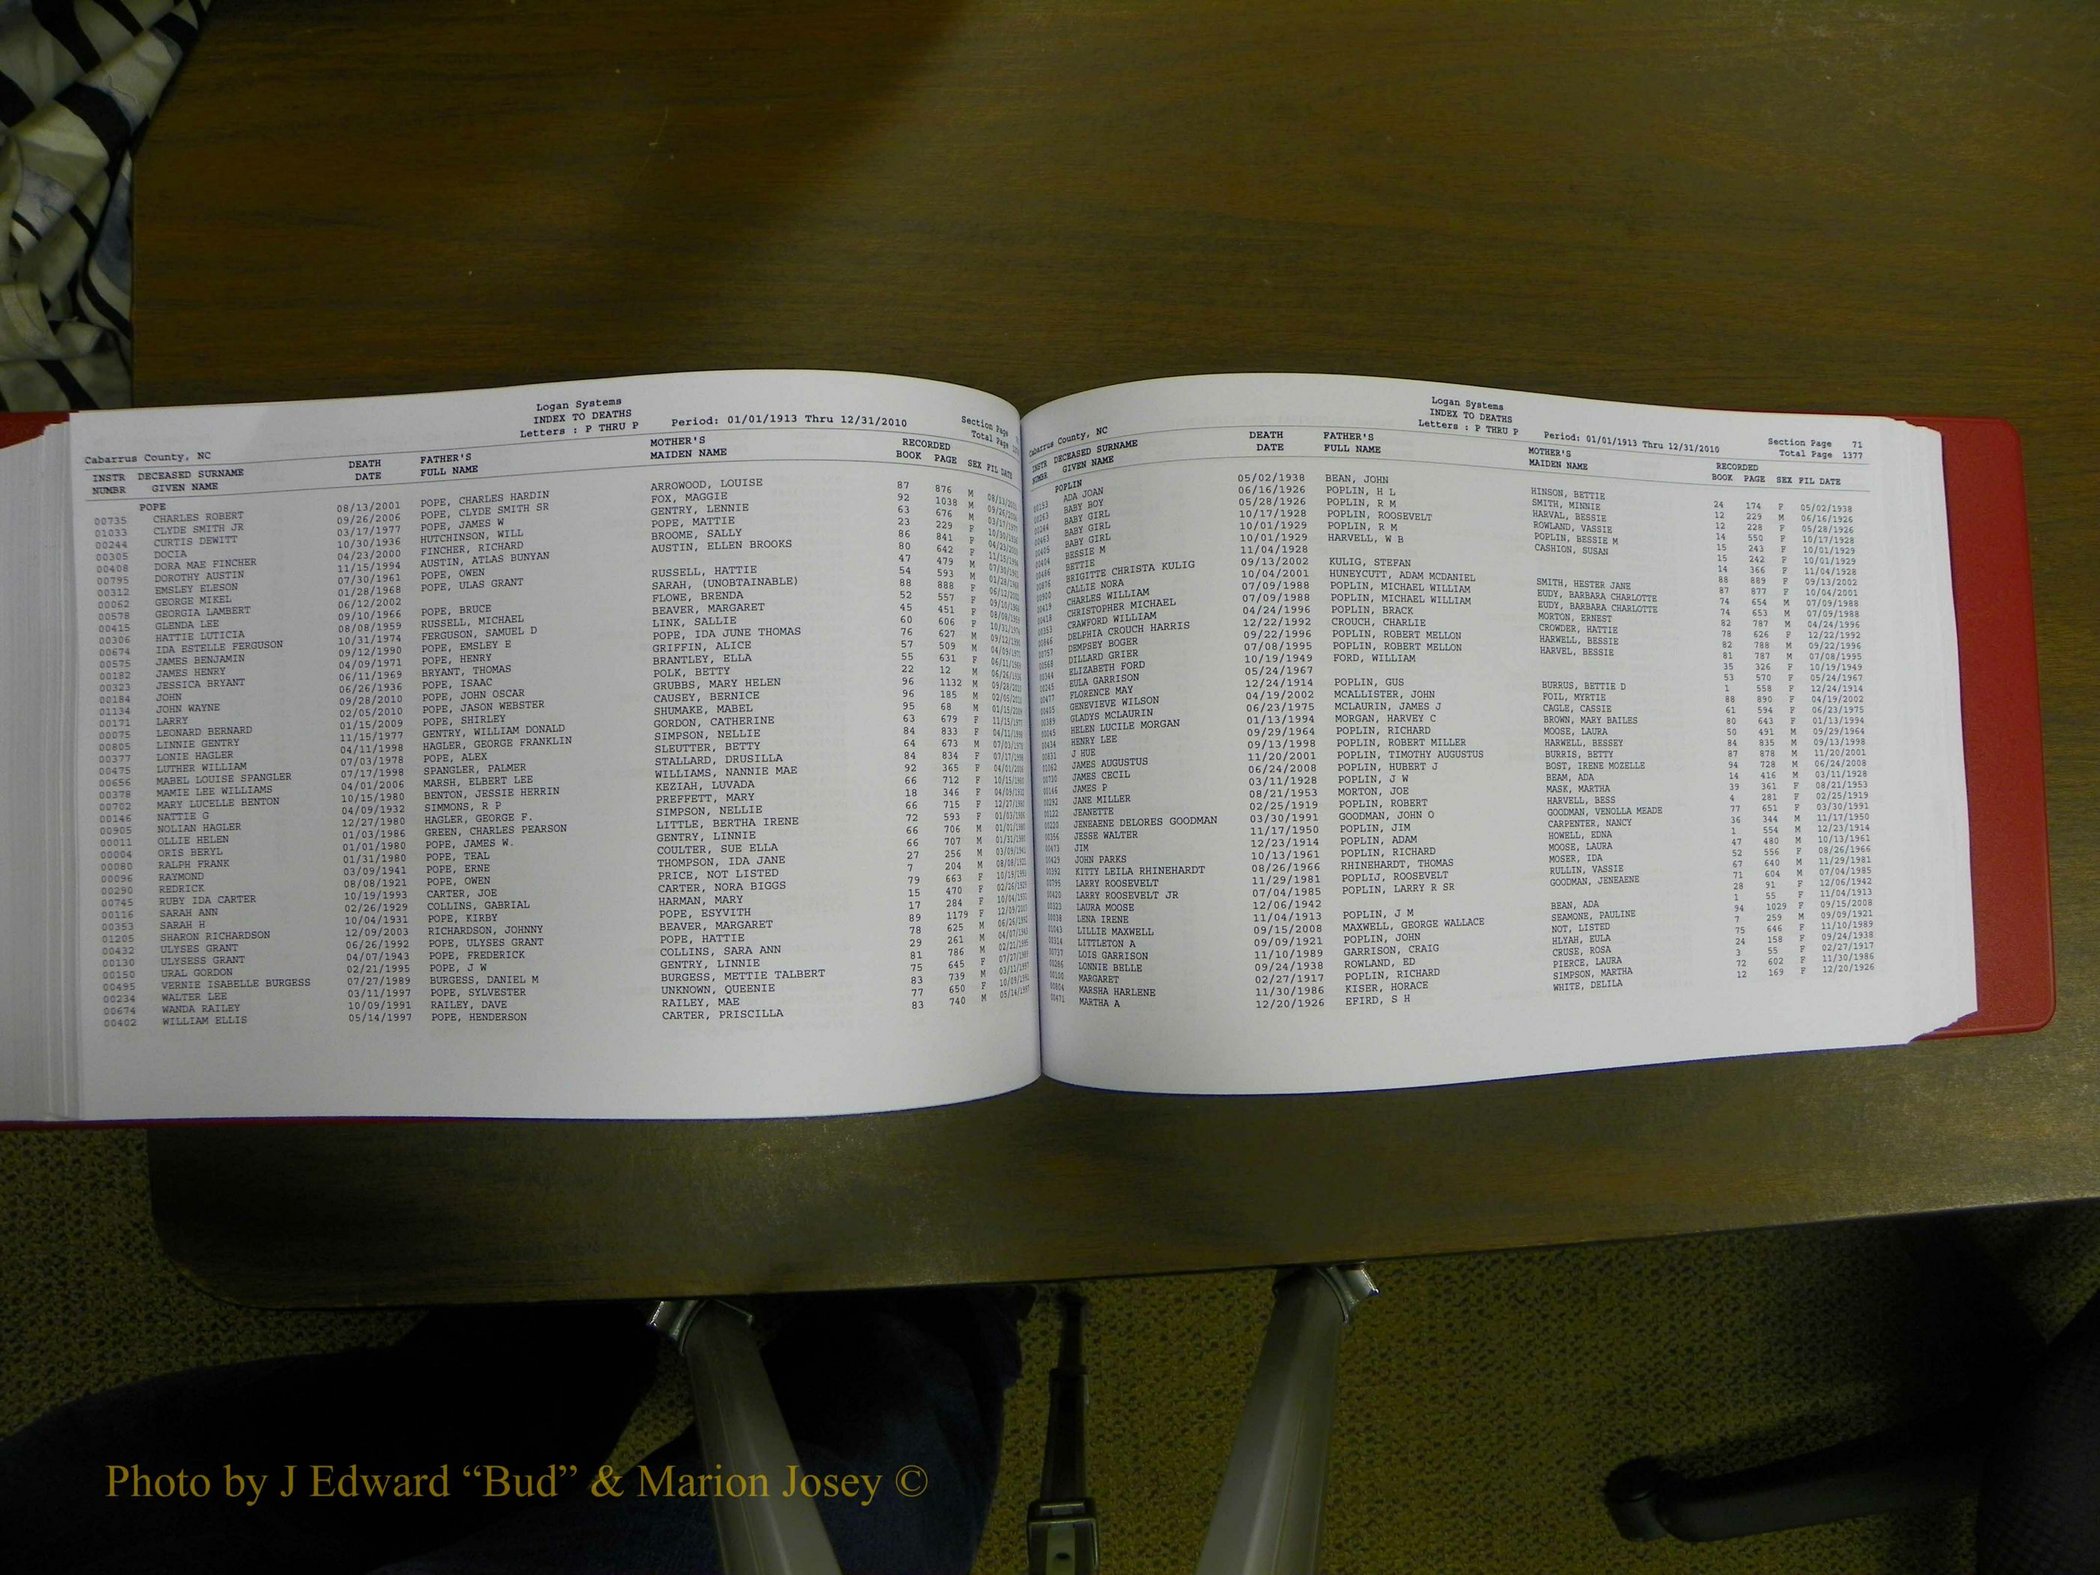 Logan Systems
INDEX TO DEATHS
Letters : P THRU P Period: 01/01/1913 Thru 12/31/2010 Section Page
Cabarrus County, NC Total Page
INSTR DECEASED SURNAME DEATH FATHER'S MOTHER'S RECORDED
NUMBR GIVEN NAME DATE FULL NAME MAIDEN NAME BOOK PAGE SEX FIL DATE
POPE
00735 CHARLES ROBERT 08/13/2001 POPE, CHARLES HARDIN ARROWOOD, LOUISE 87 876 M
01033 CLYDE SMITH JR 09/26/2006 POPE, CLYDE SMITH SR FOX, MAGGIE 92 1038 M
00244 CURTIS DEWITT 03/17/1977 POPE, JAMES W GENTRY, LENNIE 63 676 M
00305 DOCIA 10/30/1936 HUTCHINSON, WILL POPE, MATTIE 23 229 F
00408 DORA MAE FINCHER 04/23/2000 FINCHER, RICHARD BROOME, SALLY 86 841 F
00795 DOROTHY AUSTIN 11/15/1994 AUSTIN, ATLAS BUNYAN AUSTIN, ELLEN BROOKS 80 642 F
00312 EMSLEY ELESON 07/30/1961 POPE, OWEN 47 479 M
00062 GEORGE MIKEL 01/28/1968 POPE, ULAS GRANT RUSSELL, HATTIE 54 593 M
00578 GEORGIA LAMBERT 06/12/2002 SARAH, (UNOBTAINABLE) 88 888 F
00415 GLENDA LEE 09/10/1966 POPE, BRUCE FLOWE, BRENDA 52 557 F
00306 HATTIE LUTICIA 08/08/1959 RUSSELL, MICHAEL BEAVER, MARGARET 45 451 F
00674 IDA ESTELLE FERGUSON 10/31/1974 FERGUSON, SAMUEL D LINK, SALLIE 60 606 F
00575 JAMES BENJAMIN 09/12/1990 POPE, EMSLEY E POPE, IDA JUNE THOMAS 76 627 M
00182 JAMES HENRY 04/09/1971 POPE, HENRY GRIFFIN, ALICE 57 509 M
00323 JESSICA BRYANT 06/11/1969 BRYANT, THOMAS BRANTLEY, ELLA 55 631 F
00184 JOHN 06/26/1936 POPE, ISAAC POLK, BETTY 22 12 M
01134 JOHN WAYNE 09/28/2010 POPE, JOHN OSCAR GRUBBS, MARY HELEN 96 1132 M
00171 LARRY 02/05/2010 POPE, JASON WEBSTER CAUSEY, BERNICE 96 185 M
00075 LEONARD BERNARD 01/15/2009 POPE, SHIRLEY SHUMAKE, MABEL 95 68 M
00805 LINNIE GENTRY 11/15/1977 GENTRY, WILLIAM DONALD GORDON, CATHERINE 63 679 F
00377 LONIE HAGLER 04/11/1998 HAGLER, GEORGE FRANKLIN SIMPSON, NELLIE 84 833 F
00475 LUTHER WILLIAM 07/03/1978 POPE, ALEX SLEUTTER, BETTY 64 673 M
00656 MABEL LOUISE SPANGLER 07/17/1998 SPANGLER, PALMER STALLARD, DRUSILLA 84 834 F
00378 MAMIE LEE WILLIAMS 04/01/2006 MARSH, ELBERT LEE WILLIAMS, NANNIE MAE 92 365 F
00702 MARY LUCELLE BENTON 10/15/1980 BENTON, JESSIE HERRIN KEZIAH, LUVADA 66 712 F
00146 NATTIE G 04/09/1932 SIMMONS, R P PREFFETT, MARY 18 346 F
00905 NOLIAN HAGLER 12/27/1980 HAGLER, GEORGE F. SIMPSON, NELLIE 66 715 F
00011 OLLIE HELEN 01/03/1986 GREEN, CHARLES PEARSON LITTLE, BERTHA IRENE 72 593 F
00004 ORIS BERYL 01/01/1980 POPE, JAMES W. GENTRY, LINNIE 66 706 M
00080 RALPH FRANK 01/31/1980 POPE, TEAL COULTER, SUE ELLA 66 707 M
00096 RAYMOND 03/09/1941 POPE, ERNE THOMPSON, IDA JANE 27 256 M
00290 REDRICK 08/08/1921 POPE, OWEN PRICE, NOT LISTED 7 204 M
00745 RUBY IDA CARTER 10/19/1993 CARTER, JOE CARTER, NORA BIGGS 79 663 F
00116 SARAH ANN 02/26/1929 COLLINS, GABRIAL HARMAN, MARY 15 470 F
00353 SARAH H 10/04/1931 POPE, KIRBY POPE, ESYVITH 17 284 F
01205 SHARON RICHARDSON 12/09/2003 RICHARDSON, JOHNNY BEAVER, MARGARET 89 1179 F
00432 ULYSES GRANT 06/26/1992 POPE, ULYSES GRANT POPE, HATTIE 78 625 M
00130 ULYSESS GRANT 04/07/1943 POPE, FREDERICK COLLINS, SARA ANN 29 261 M
00150 URAL GORDON 02/21/1995 POPE, J W GENTRY, LINNIE 81 786 M
00495 VERNIE ISABELLE BURGESS 07/27/1989 BURGESS, DANIEL M BURGESS, METTIE TALBERT 75 645 F
00234 WALTER LEE 03/11/1997 POPE, SYLVESTER UNKNOWN, QUEENIE 83 739 M
00674 WANDA RAILEY 10/09/1991 RAILEY, DAVE RAILEY, MAE 77 650 F
00402 WILLIAM ELLIS 05/14/1997 POPE, HENDERSON CARTER, PRISCILLA 83 740 M
Logan Systems
INDEX TO DEATHS
Letters : P THRU P Period: 01/01/1913 Thru 12/31/2010 Section Page 71
Cabarrus County, NC Total Page 1377
INSTR DECEASED SURNAME DEATH FATHER'S MOTHER'S RECORDED
NUMBR GIVEN NAME DATE FULL NAME MAIDEN NAME BOOK PAGE SEX FIL DATE
POPLIN
ADA JOAN 05/02/1938 BEAN, JOHN HINSON, BETTIE 24 174 F 05/02/1938
BABY BOY 06/16/1926 POPLIN, H L SMITH, MINNIE 12 229 M 06/16/1926
BABY GIRL 05/28/1926 POPLIN, R M HARVAL, BESSIE 12 228 F 05/28/1926
BABY GIRL 10/17/1928 POPLIN, ROOSEVELT ROWLAND, VASSIE 14 550 F 10/17/1928
BABY GIRL 10/01/1929 POPLIN, R M POPLIN, BESSIE M 15 243 F 10/01/1929
BESSIE M 10/01/1929 HARVELL, W B CASHION, SUSAN 15 242 F 10/01/1929
BETTIE 11/04/1928 14 366 F 11/04/1928
BRIGITTE CHRISTA KULIG 09/13/2002 KULIG, STEFAN 88 889 F 09/13/2002
CALLIE NORA 10/04/2001 HUNEYCUTT, ADAM MCDANIEL SMITH, HESTER JANE 87 877 F 10/04/2001
CHARLES WILLIAM 07/09/1988 POPLIN, MICHAEL WILLIAM EUDY, BARBARA CHARLOTTE 74 654 M 07/09/1988
CHRISTOPHER MICHAEL 07/09/1988 POPLIN, MICHAEL WILLIAM EUDY, BARBARA CHARLOTTE 74 653 M 07/09/1988
CRAWFORD WILLIAM 04/24/1996 POPLIN, BRACK MORTON, ERNEST 82 787 M 04/24/1996
DELPHIA CROUCH HARRIS 12/22/1992 CROUCH, CHARLIE CROWDER, HATTIE 78 626 F 12/22/1992
DEMPSEY BOGER 09/22/1996 POPLIN, ROBERT MELLON HARWELL, BESSIE 82 788 M 09/22/1996
DILLARD GRIER 07/08/1995 POPLIN, ROBERT MELLON HARVEL, BESSIE 81 787 M 07/08/1995
ELIZABETH FORD 10/19/1949 FORD, WILLIAM 35 326 F 10/19/1949
EULA GARRISON 05/24/1967 53 570 F 05/24/1967
FLORENCE MAY 12/24/1914 POPLIN, GUS BURRUS, BETTIE D 1 558 F 12/24/1914
GENEVIEVE WILSON 04/19/2002 MCALLISTER, JOHN FOIL, MYRTIE 88 890 F 04/19/2002
GLADYS MCLAURIN 06/23/1975 MCLAURIN, JAMES J CAGLE, CASSIE 61 594 F 06/23/1975
HELEN LUCILE MORGAN 01/13/1994 MORGAN, HARVEY C BROWN, MARY BAILES 80 643 F 01/13/1994
HENRY LEE 09/29/1964 POPLIN, RICHARD MOOSE, LAURA 50 491 M 09/29/1964
J HUE 09/13/1998 POPLIN, ROBERT MILLER HARWELL, BESSEY 84 835 M 09/13/1998
JAMES AUGUSTUS 11/20/2001 POPLIN, TIMOTHY AUGUSTUS BURRIS, BETTY 87 878 M 11/20/2001
JAMES CECIL 06/24/2008 POPLIN, HUBERT J BOST, IRENE MOZELLE 94 728 M 06/24/2008
JAMES P 03/11/1928 POPLIN, J W BEAM, ADA 14 416 M 03/11/1928
JANE MILLER 08/21/1953 MORTON, JOE MASK, MARTHA 39 361 F 08/21/1953
JEANETTE 02/25/1919 POPLIN, ROBERT HARVELL, BESS 4 281 F 02/25/1919
JENEAENE DELORES GOODMAN 03/30/1991 GOODMAN, JOHN O GOODMAN, VENOLLA MEADE 77 651 F 03/30/1991
JESSE WALTER 11/17/1950 POPLIN, JIM CARPENTER, NANCY 36 344 M 11/17/1950
JIM 12/23/1914 POPLIN, ADAM HOWELL, EDNA 1 554 M 12/23/1914
JOHN PARKS 10/13/1961 POPLIN, RICHARD MOOSE, LAURA 47 480 M 10/13/1961
KITTY LEILA RHINEHARDT 08/26/1966 RHINEHARDT, THOMAS MOSER, IDA 52 556 F 08/26/1966
LARRY ROOSEVELT 11/29/1981 POPLIJ, ROOSEVELT RULLIN, VASSIE 67 640 M 11/29/1981
LARRY ROOSEVELT JR 07/04/1985 POPLIN, LARRY R SR GOODMAN, JENEAENE 71 604 M 07/04/1985
LAURA MOOSE 12/06/1942 28 91 F 12/06/1942
LENA IRENE 11/04/1913 POPLIN, J M BEAN, ADA 1 55 F 11/04/1913
LILLIE MAXWELL 09/15/2008 MAXWELL, GEORGE WALLACE SEAMONE, PAULINE 94 1029 F 09/15/2008
LITTLETON A 09/09/1921 POPLIN, JOHN NOT, LISTED 7 259 M 09/09/1921
LOIS GARRISON 11/10/1989 GARRISON, CRAIG HLYAH, EULA 75 646 F 11/10/1989
LONNIE BELLE 09/24/1938 ROWLAND, ED CRUSE, ROSA 24 158 F 09/24/1938
MARGARET 02/27/1917 POPLIN, RICHARD PIERCE, LAURA 3 55 F 02/27/1917
MARSHA HARLENE 11/30/1986 KISER, HORACE SIMPSON, MARTHA 72 602 F 11/30/1986
MARTHA A 12/20/1926 EFIRD, S H WHITE, DELILA 12 169 F 12/20/1926
Photo by J Edward “Bud” & Marion Josey ©